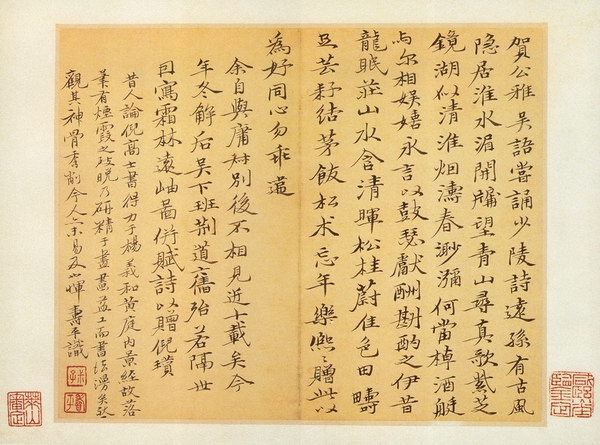 賀公雅吳語嘗誦少陵詩遠孫有古風
隐居淮水湄開牖望青山尋真歌紫芝
鏡湖似清淮烟濤春渺瀰何當棹酒艇
与尔相娛嬉永言以鼓瑟獻酬斟酌之伊昔
龍眠莊山水含清暉松桂蔚佳色田疇
且芸耔結茅飯松术忘年樂熙〻贈此以
為好同心勿乖違
余自與庸村別後不相見近十載矣今
年冬解后吳下班荆道舊殆若隔世
因寫霜林遠岫啚併賦詩以贈倪瓚
昔人論倪高士書得力于楊羲和黃庭內景經故落
筆有煙霞之致晚乃研精于畫畫益工而書法矣然
觀其神骨秀削今人易及惲壽平識